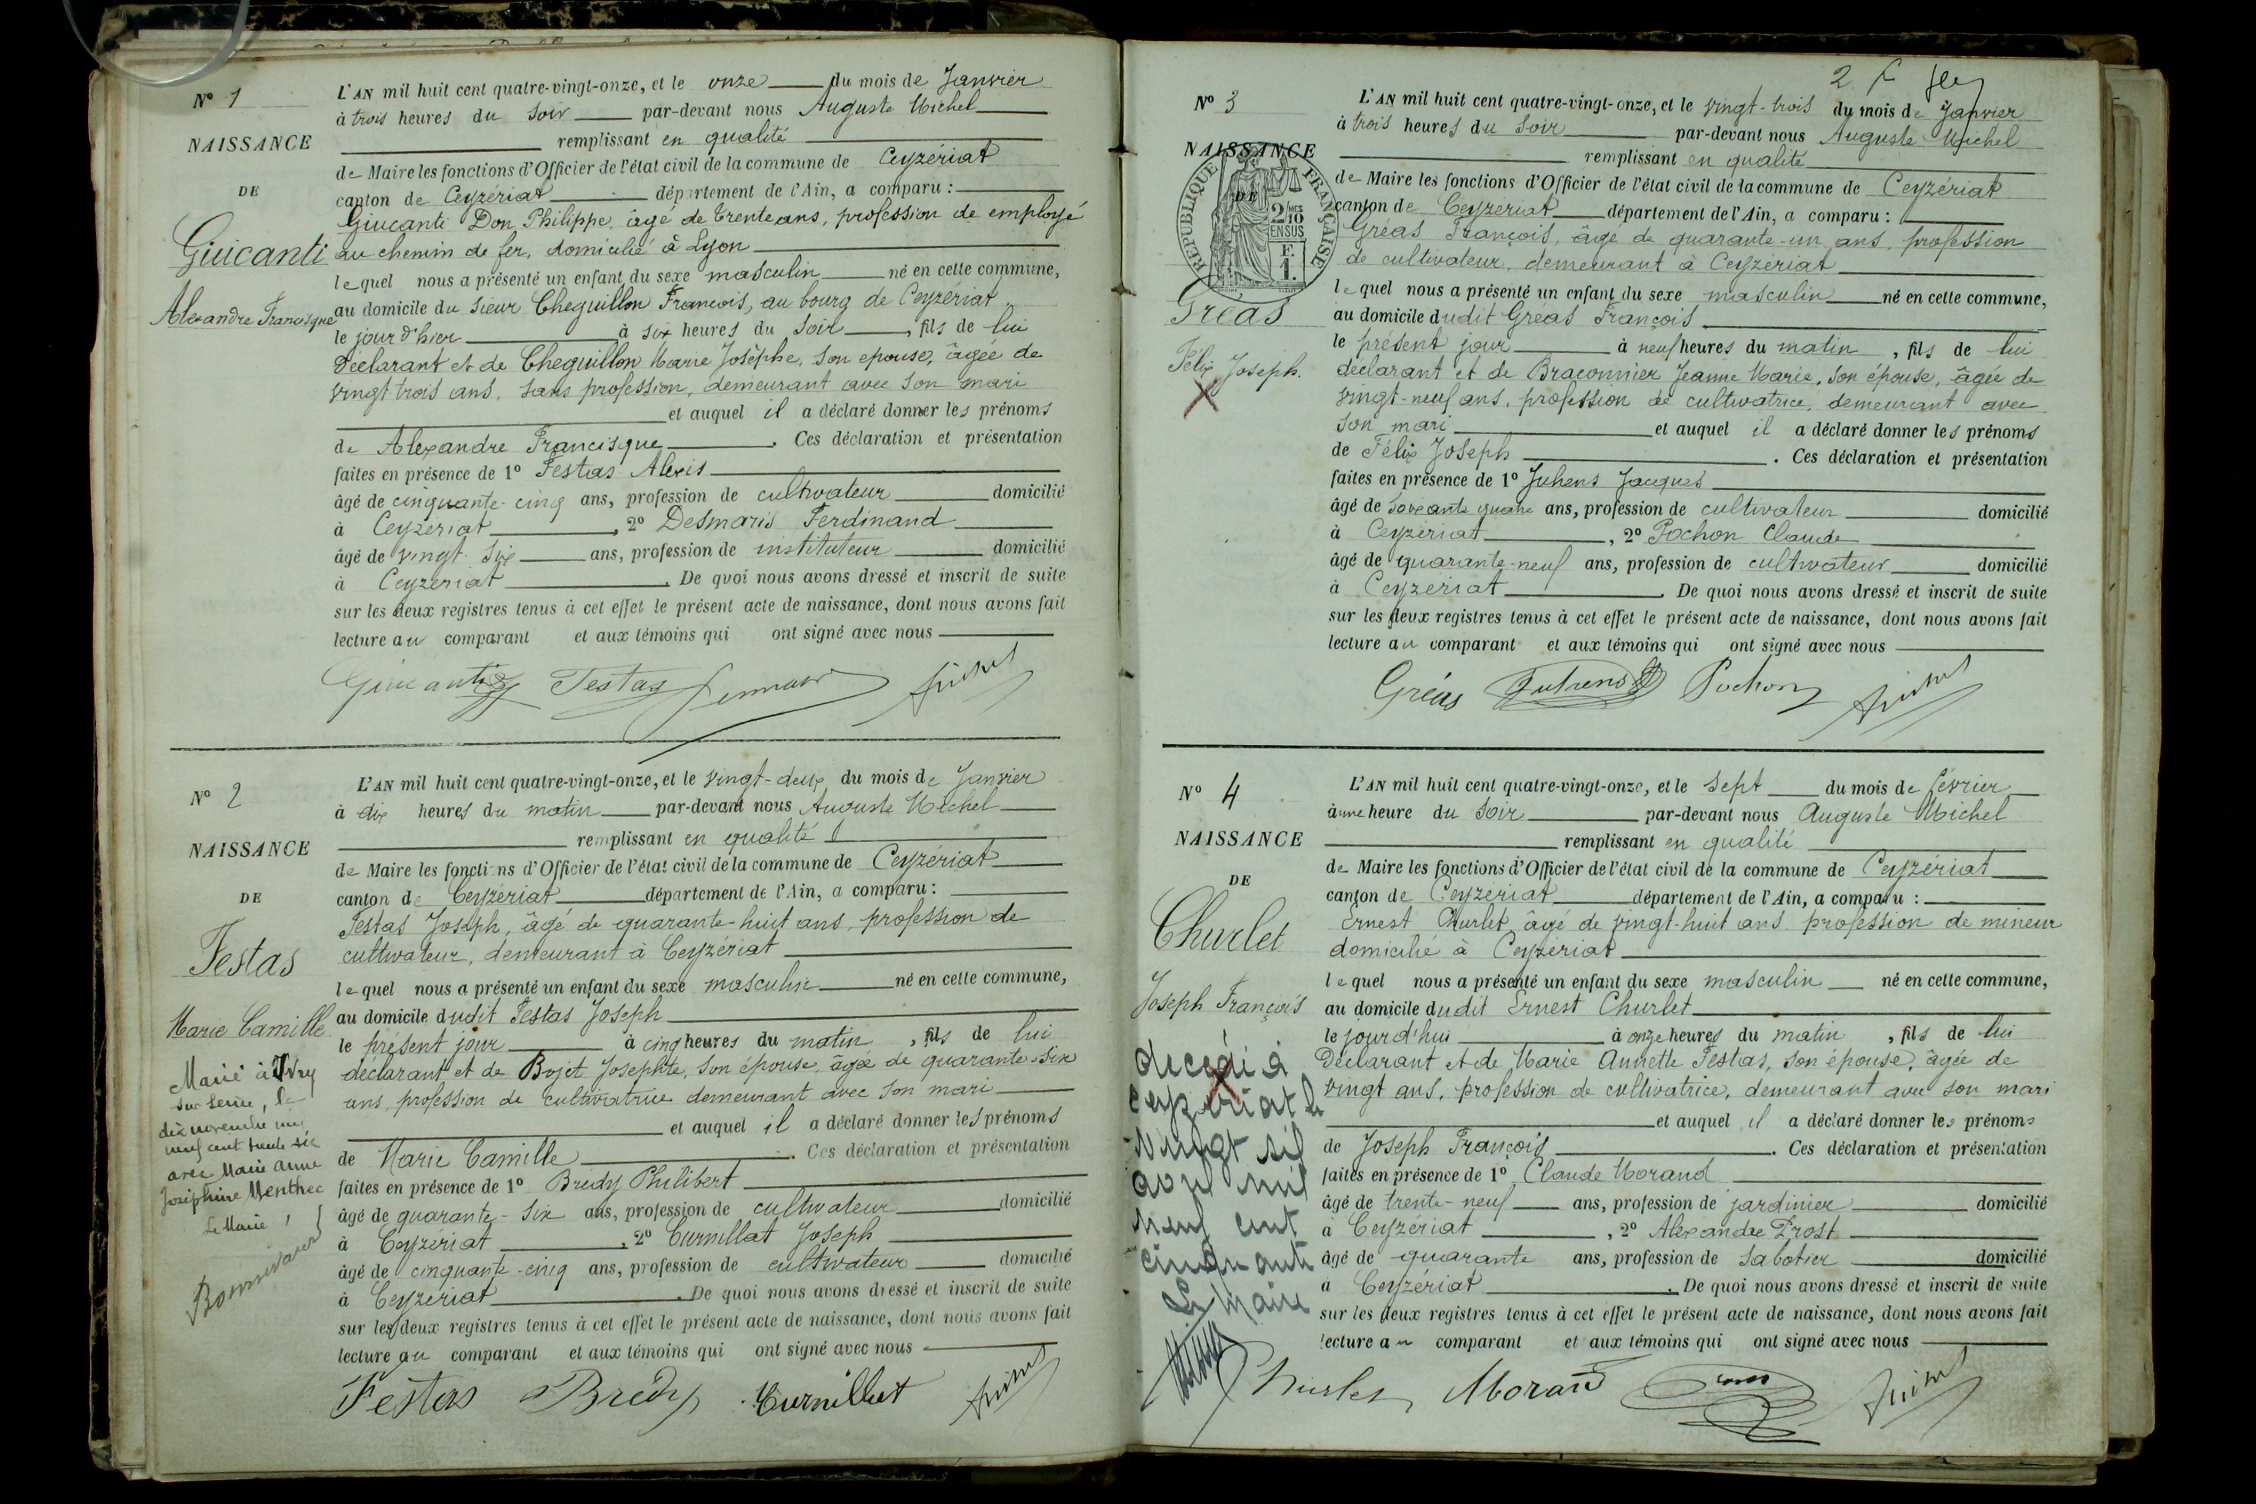 N° 1
NAISSANCE
DE
Giucanti
Alexandre Francisque
L'AN mil huit cent quatre-vingt-onze, et le onze du mois de Janvier
à trois heures du soir par-devant nous Auguste Michel
remplissant en qualité
de Maire les fonctions d'Officier de l'état civil de la commune de Ceyzériat
canton de Ceyzériat département de l'Ain, a comparu :
Giucanti Don Philippe, âgé de trente ans, profession de employé
au chemin de fer, domicilié à Lyon
lequel nous a présenté un enfant du sexe masculin né en cette commune,
au domicile du sieur Cheguillon François, au bourg de Ceyzériat
le jour d'hier à six heures du soir, fils de lui
Déclarant et de Cheguillon Marie Josèphe, son epouse, âgée de
vingt trois ans, sans profession, demeurant avec son mari
et auquel il a déclaré donner les prénoms
de Alexandre Francisque. Ces déclaration et présentation
faites en présence de 1° Festas Alexis
âgé de cinquante-cinq ans, profession de cultivateur domicilié
à Ceyzériat, 2° Desmaris Ferdinand
âgé de vingt six ans, profession de instituteur domicilié
à Ceyzériat. De quoi nous avons dressé et inscrit de suite
sur les deux registres tenus à cet effet le présent acte de naissance, dont nous avons fait
lecture au comparant et aux témoins qui ont signé avec nous
Giucanti Festas
N° 2
NAISSANCE
DE
Festas
Marie Camille
Marié à Ivry
sur Seine, le
dix novembre mil
neuf cent trente six
avec Marie Anne
Joséphine Menthec
Le Maire
L'AN mil huit cent quatre-vingt-onze, et le vingt-deux du mois de Janvier
à dix heures du matin par-devant nous Auguste Michel
remplissant en qualité
de Maire les fonctions d'Officier de l'état civil de la commune de Ceyzériat
canton de Ceyzériat département de l'Ain, a comparu :
Festas Joseph, âgé de quarante-huit ans, profession de
cultivateur, demeurant à Ceyzériat
lequel nous a présenté un enfant du sexe masculin né en cette commune,
au domicile dudit Festas Joseph
le présent jour à cinq heures du matin, fils de lui
déclarant et de Bojet Josephte, son épouse, âgée de quarante-six
ans, profession de cultivatrice demeurant avec son mari
et auquel il a déclaré donner les prénoms
de Marie Camille. Ces déclaration et présentation
faites en présence de 1° Bredy Philibert
âgé de quarante-six ans, profession de cultivateur domicilié
à Ceyzériat, 2° Curnillat Joseph
âgé de cinquante-cinq ans, profession de cultivateur domicilié
à Ceyzériat. De quoi nous avons dressé et inscrit de suite
sur les deux registres tenus à cet effet le présent acte de naissance, dont nous avons fait
lecture au comparant et aux témoins qui ont signé avec nous
Festas Bredy Curnillat
2
N° 3
NAISSANCE
DE
RÉPUBLIQUE FRANÇAISE
2/10 EN SUS
F. 1.
Gréas
Félix Joseph.
L'AN mil huit cent quatre-vingt-onze, et le vingt-trois du mois de Janvier
à trois heures du soir par-devant nous Auguste Michel
remplissant en qualité
de Maire les fonctions d'Officier de l'état civil de la commune de Ceyzériat
canton de Ceyzériat département de l'Ain, a comparu :
Gréas François, âgé de quarante-un ans, profession
de cultivateur, demeurant à Ceyzériat
lequel nous a présenté un enfant du sexe masculin né en cette commune,
au domicile dudit Gréas François
le présent jour à neuf heures du matin, fils de lui
déclarant et de Braconnier Jeanne Marie, son épouse, âgée de
vingt-neuf ans, profession de cultivatrice, demeurant avec
son mari et auquel il a déclaré donner les prénoms
de Félix Joseph. Ces déclaration et présentation
faites en présence de 1° Juhens Jacques
âgé de soixante quatre ans, profession de cultivateur domicilié
à Ceyzériat, 2° Pochon Claude
âgé de quarante-neuf ans, profession de cultivateur domicilié
à Ceyzériat. De quoi nous avons dressé et inscrit de suite
sur les deux registres tenus à cet effet le présent acte de naissance, dont nous avons fait
lecture au comparant et aux témoins qui ont signé avec nous
Gréas Pochon
N° 4
NAISSANCE
DE
Churlet
Joseph François
décédé à
Ceyzériat le
vingt six
avril mil
neuf cent
cinquante
Le Maire
L'AN mil huit cent quatre-vingt-onze, et le sept du mois de février
à une heure du soir par-devant nous Auguste Michel
remplissant en qualité
de Maire les fonctions d'Officier de l'état civil de la commune de Ceyzériat
canton de Ceyzériat département de l'Ain, a comparu :
Ernest Churlet, âgé de vingt-huit ans profession de mineur
domicilié à Ceyzériat
lequel nous a présenté un enfant du sexe masculin né en cette commune,
au domicile dudit Ernest Churlet
le jourd'hui à onze heures du matin, fils de lui
Déclarant et de Marie Annette Festas, son épouse, âgée de
vingt ans, profession de cultivatrice, demeurant avec son mari
et auquel il a déclaré donner les prénoms
de Joseph François. Ces déclaration et présentation
faites en présence de 1° Claude Morand
âgé de trente-neuf ans, profession de jardinier domicilié
à Ceyzériat, 2° Alexandre Prost
âgé de quarante ans, profession de sabotier domicilié
à Ceyzériat. De quoi nous avons dressé et inscrit de suite
sur les deux registres tenus à cet effet le présent acte de naissance, dont nous avons fait
lecture au comparant et aux témoins qui ont signé avec nous
Churlet Morand